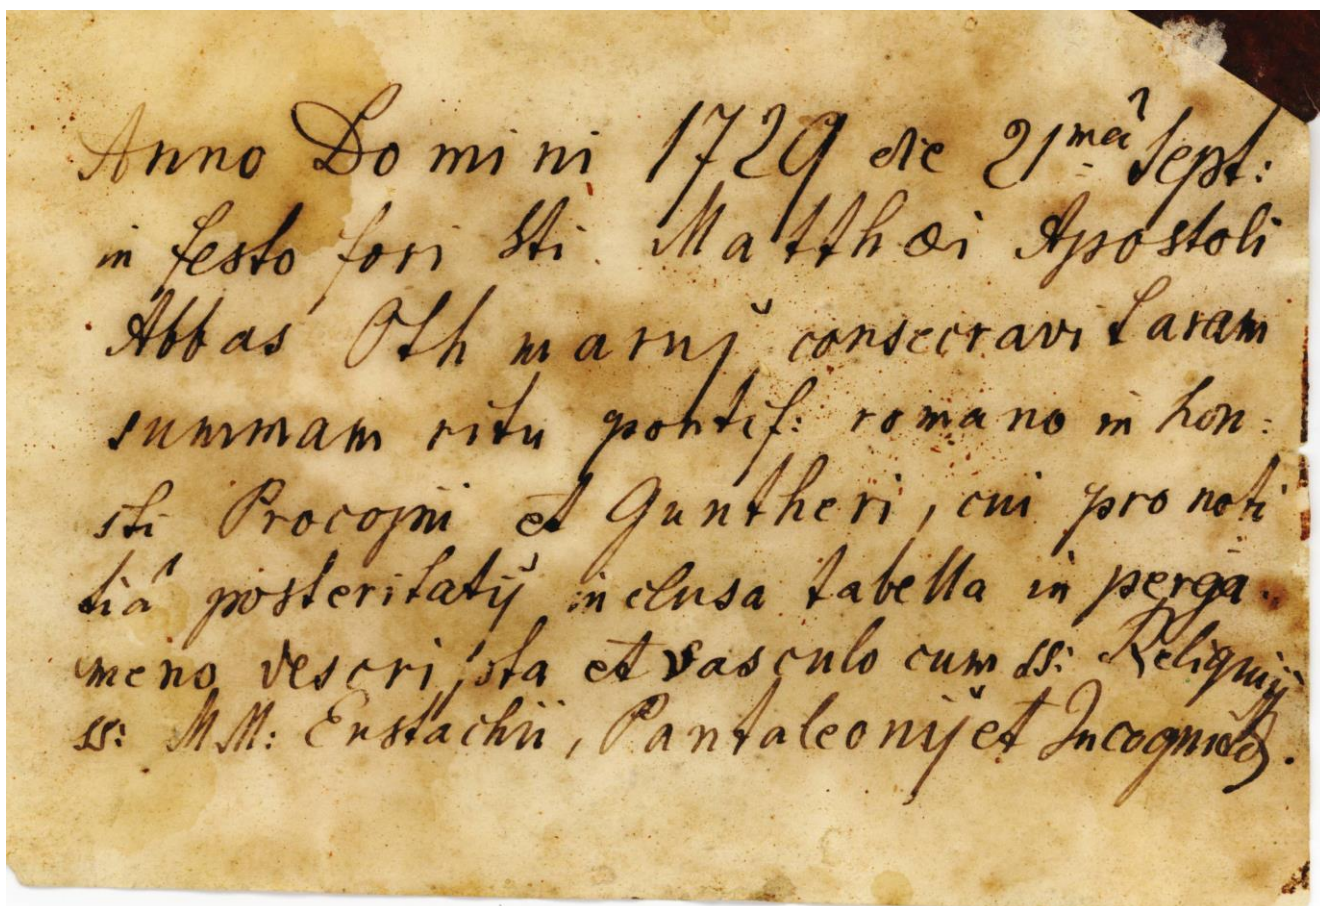 Anno Domini 1729 die 21mâ Sept:
in festo fori Sti Matthæi Apostoli
Abbas Othmaruj consecravit aram
summam ritu pontif: romano in hon:
sti Procopii et Guntheri, cui pro noti
tiâ posteritatij inclusa tabella in perga..
meno descripta et vasculo cum ss: Reliquiij
ss: MM: Eustachii, Pantaleonij et